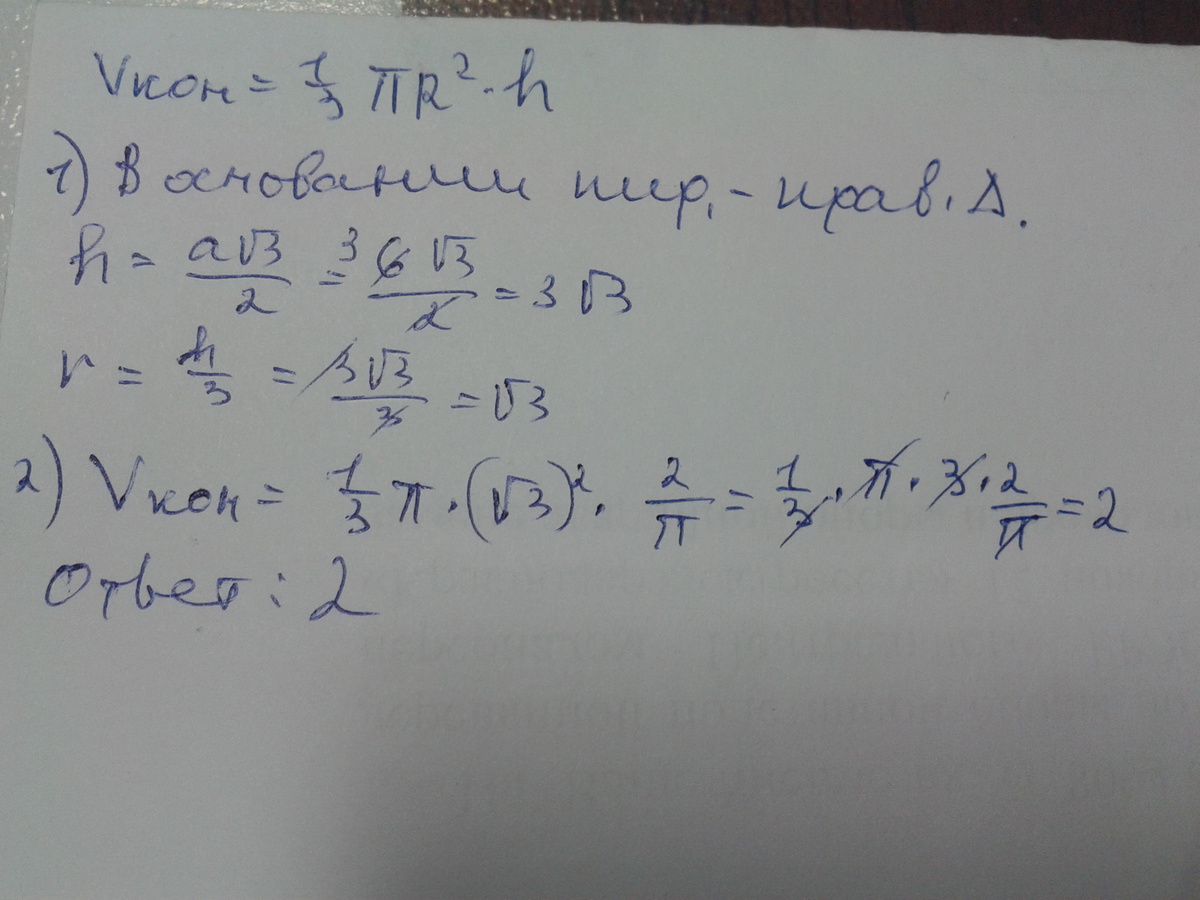 Vкон = 1/3 πR² · h
1) В основании пир. - прав. Δ.
h = a√3/2 = 3 6√3/2 = 3√3
r = h/3 = 3√3/3 = √3
2) Vкон = 1/3 π · (√3)² · 2/π = 1/3 · π · 3 · 2/π = 2
Ответ: 2